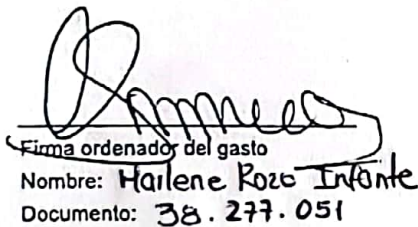 Firma ordenador del gasto
Nombre: Hailene Rozo Infante
Documento: 38.277.051